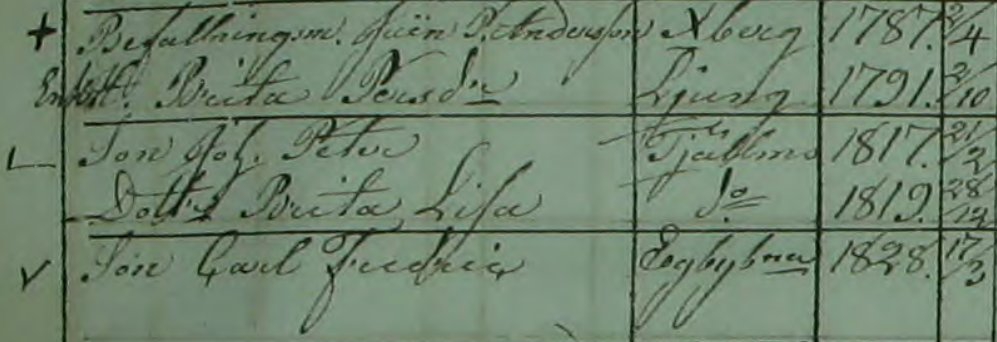 + Befallningsm. Jüen P. Andersson Xberg 1787. 2/4
Enk. Brita Persdr Ljung 1791. 2/10
Son Joh. Peter Tjällmo 1817. 21/2
Dottr Brita Lisa do 1819. 28/12
Son Carl Fredric 1828. 17/3